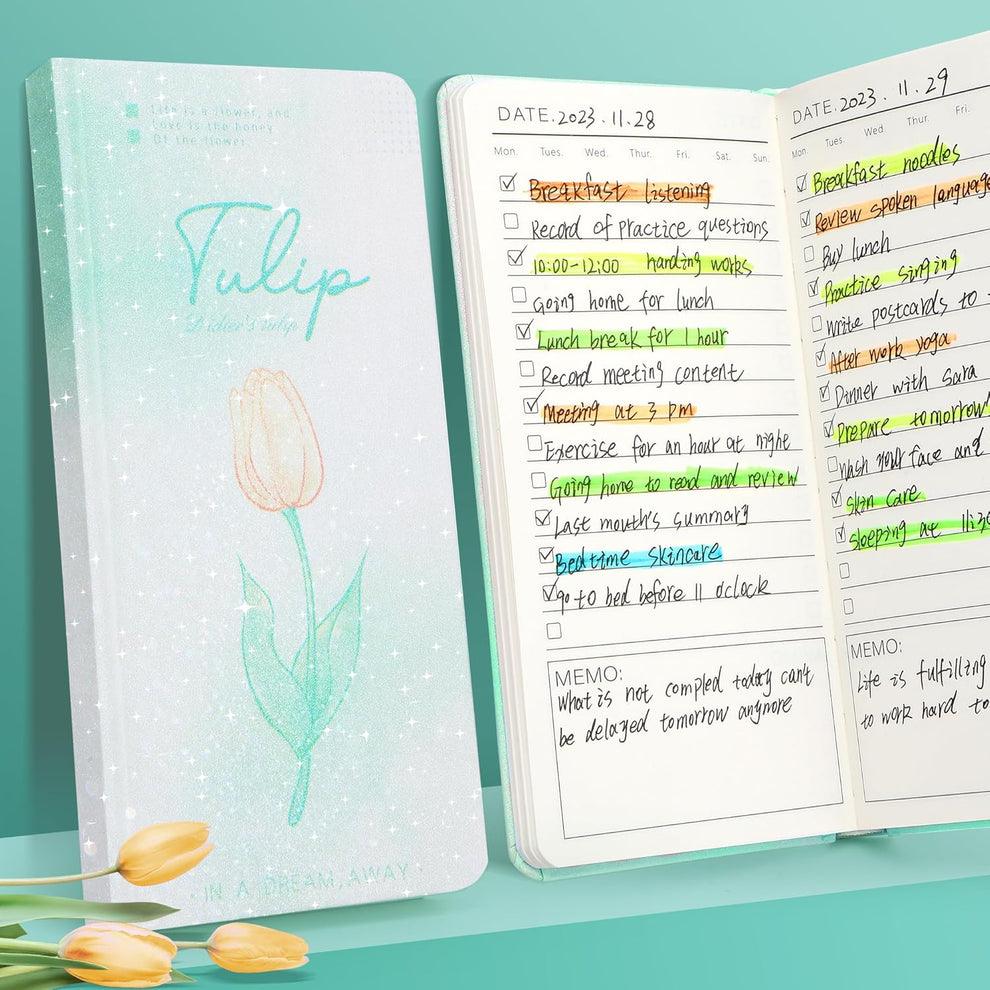 Life is a flower, and
Love is the honey
Of the flower
Tulip
Didier's tulip
IN A DREAM, AWAY
DATE.2023.11.28
Mon. Tues. Wed. Thur. Fri. Sat. Sun.
Breakfast listening
Record of practice questions
10:00-12:00 harding works
Going home for lunch
Lunch break for 1 hour
Record meeting content
Meeting at 3 pm
Exercise for an hour at night
Going home to read and review
Last mouth's summary
Bedtime skincare
go to bed before 11 o'clock
MEMO:
What is not compled today can't
be delayed tomorrow anymore
DATE.2023.11.29
Mon. Tues. Wed. Thur. Fri.
Breakfast noodles
Review spoken language
Buy lunch
Practice singing
Write postcards to
After work yoga
Dinner with Sara
Prepare tomorrow's
wash your face and
Skin care
Sleeping at 11:30
MEMO:
Life is fulfilling
to work hard to